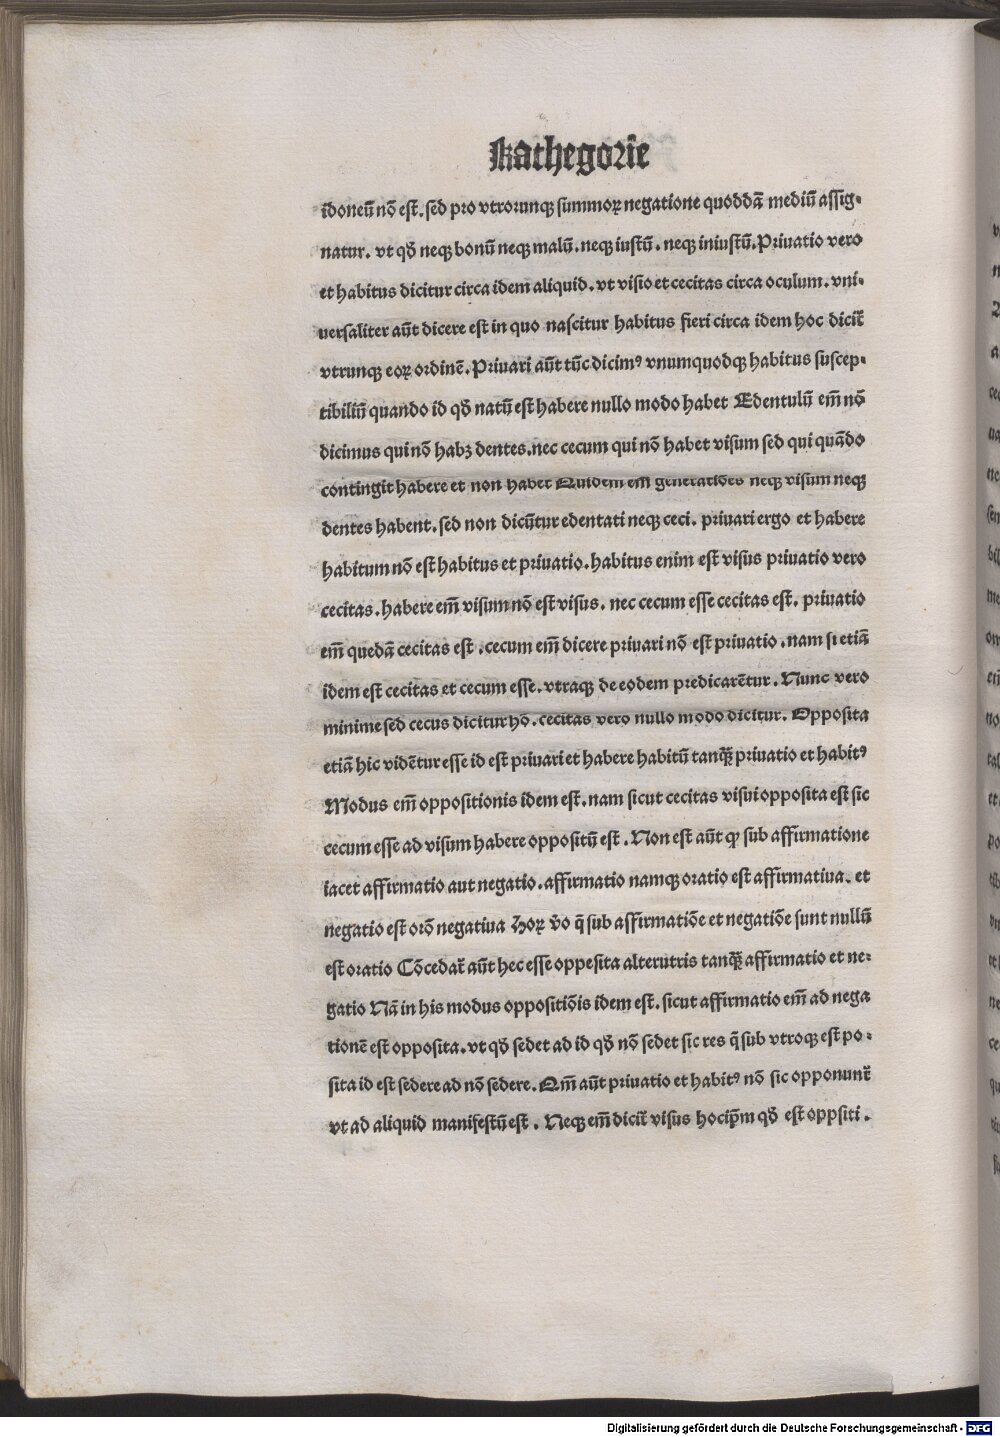 kathegorie
idoneũ nõ est. sed pro vtrorunqꝫ summoꝝ negatione quoddã mediũ assig-
natur. vt qđ neqꝫ bonũ neqꝫ malũ. neqꝫ iustũ. neqꝫ iniustũ. Priuatio vero
et habitus dicitur circa idem aliquid. vt visio et cecitas circa oculum. vni-
uersaliter aũt dicere est in quo nascitur habitus fieri circa idem hoc dicit̃
vtrunqꝫ eoꝝ ordinẽ. Priuari aũt tũc dicimꝰ vnumquodqꝫ habitus suscep-
tibiliũ quando id qđ natũ est habere nullo modo habet Edentulũ em̃ nõ
dicimus qui nõ habꝫ dentes. nec cecum qui nõ habet visum sed qui quãdo
contingit habere et non habet Quidem em̃ generatiões neqꝫ visum neqꝫ
dentes habent. sed non dicũtur edentati neqꝫ ceci. priuari ergo et habere
habitum nõ est habitus et priuatio. habitus enim est visus priuatio vero
cecitas. habere em̃ visum nõ est visus. nec cecum esse cecitas est. priuatio
em̃ quedã cecitas est. cecum em̃ dicere priuari nõ est priuatio. nam si etiã
idem est cecitas et cecum esse. vtraqꝫ de eodem predicarẽtur. Nunc vero
minime sed cecus dicitur hõ. cecitas vero nullo modo dicitur. Opposita
etiã hic vidẽtur esse id est priuari et habere habitũ tanqꝫ̃ priuatio et habitꝰ
Modus em̃ oppositionis idem est. nam sicut cecitas visui opposita est sic
cecum esse ad visum habere oppositũ est. Non est aũt ꝙ sub affirmatione
iacet affirmatio aut negatio. affirmatio namqꝫ oratio est affirmatiua. et
negatio est orõ negatiua Hoꝝ v̾o q̃ sub affirmatiõe et negatiõe sunt nullũ
est oratio Cõcedat̃ aũt hec esse oppesita alterutris tanqꝫ̃ affirmatio et ne-
gatio Nã in his modus oppositiõis idem est. sicut affirmatio em̃ ad nega
tionẽ est opposita. vt qđ sedet ad id qđ nõ sedet sic res q̃ sub vtroqꝫ est po-
sita id est sedere ad nõ sedere. Qm̃ aũt priuatio et habitꝰ nõ sic opponunt̃
vt ad aliquid manifestũ est. Neqꝫ em̃ dicit̃ visus hocip̃m qđ est oppsiti.
Digitalisierung gefördert durch die Deutsche Forschungsgemeinschaft - DFG